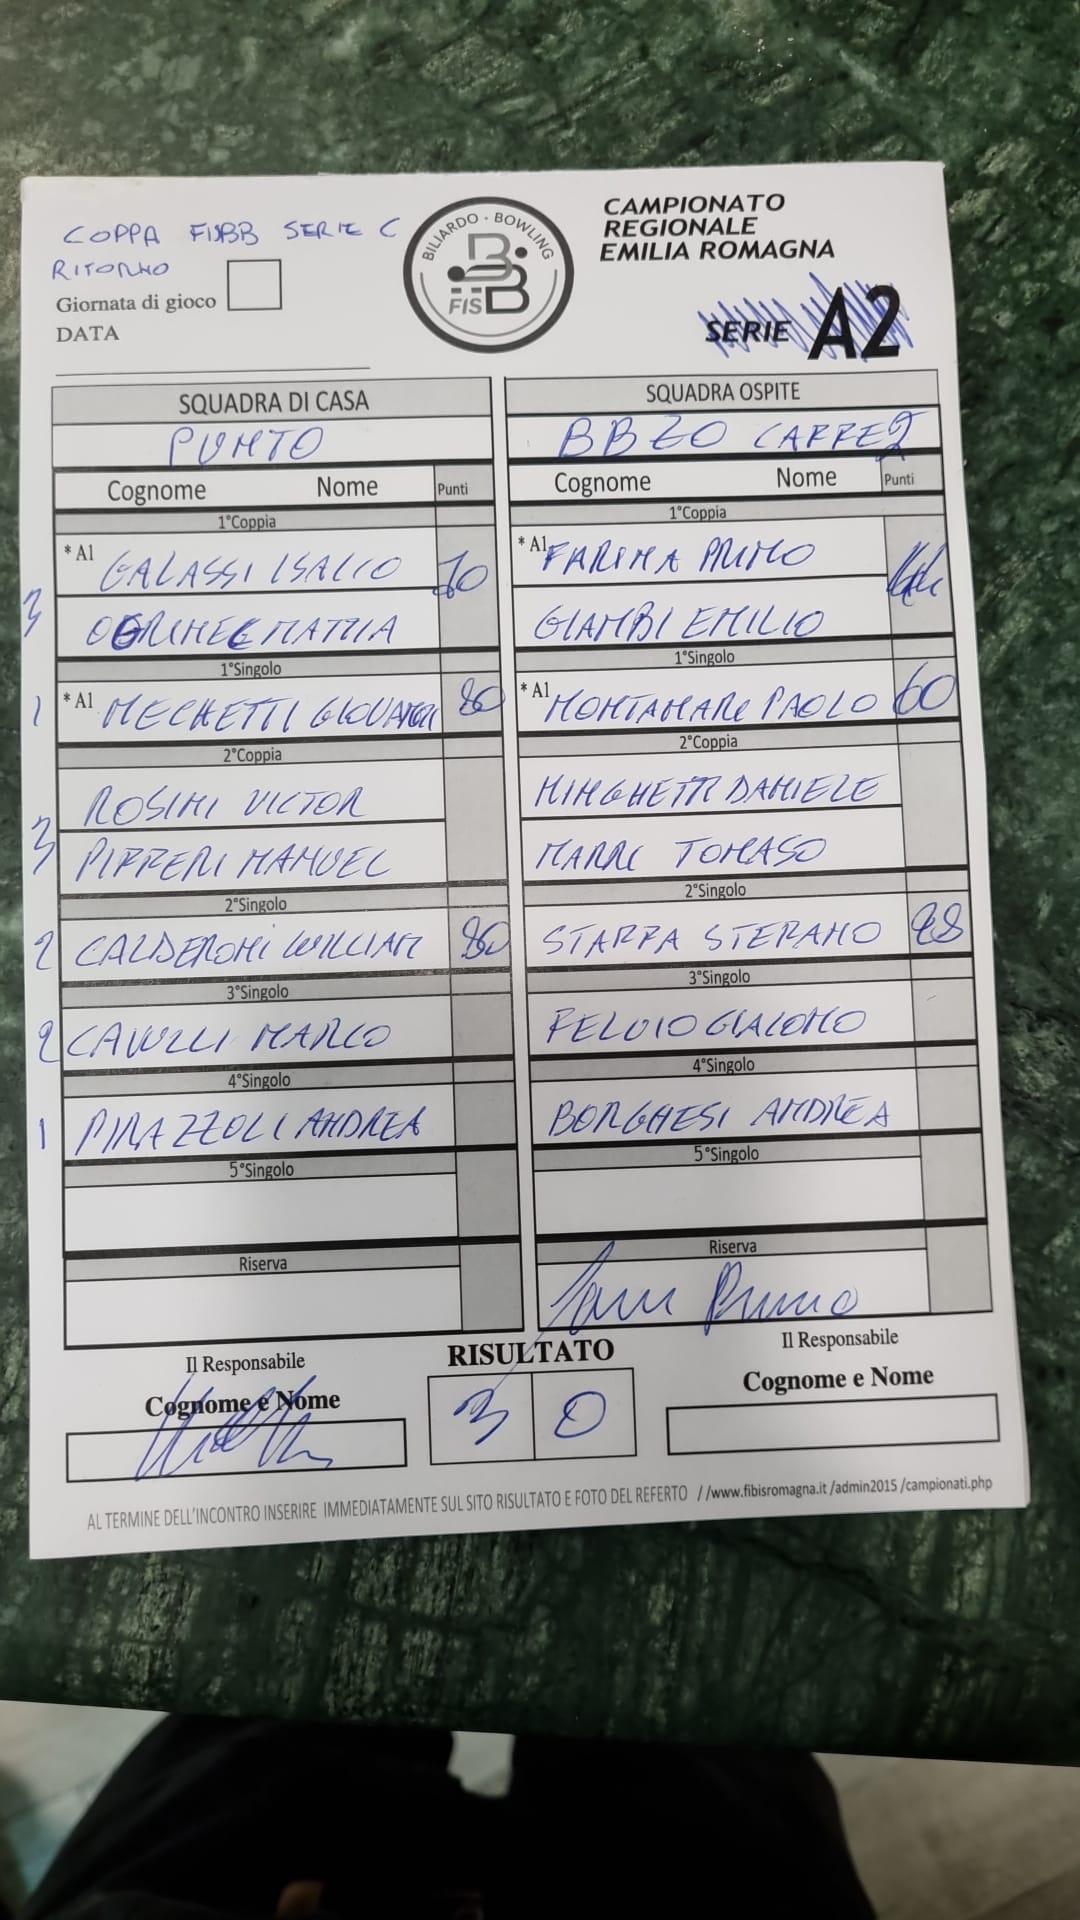 COPPA FISBB SERIE C
RITORNO
Giornata di gioco
DATA
BILIARDO · BOWLING
FISBB
CAMPIONATO
REGIONALE
EMILIA ROMAGNA
SERIE A2
SQUADRA DI CASA
PUNTO
Cognome Nome Punti
1°Coppia
*A1 GALASSI ISACCO 70
3
MATTIA
1°Singolo
1 *A1 MECHETTI GIOVANNI 80
2°Coppia
ROSINI VICTOR
3
PIFFERI MANUEL
2°Singolo
2 CALDERONI WILLIAM 80
3°Singolo
2 CAVULLI MARCO
4°Singolo
1 PIRAZZOLI ANDREA
5°Singolo
Riserva
SQUADRA OSPITE
BBZO CAFFE 2
Cognome Nome Punti
1°Coppia
*A1 FARINA PRIMO
GIAMBI EMILIO
1°Singolo
*A1 MONTANARI PAOLO 60
2°Coppia
MINGHETTI DANIELE
MARRI TOMASO
2°Singolo
STAFFA STEFANO 28
3°Singolo
GIACOMO
4°Singolo
BORGHESI ANDREA
5°Singolo
Riserva
Il Responsabile
Cognome e Nome
RISULTATO
3 0
Il Responsabile
Cognome e Nome
AL TERMINE DELL'INCONTRO INSERIRE IMMEDIATAMENTE SUL SITO RISULTATO E FOTO DEL REFERTO //www.fibisromagna.it /admin2015 /campionati.php